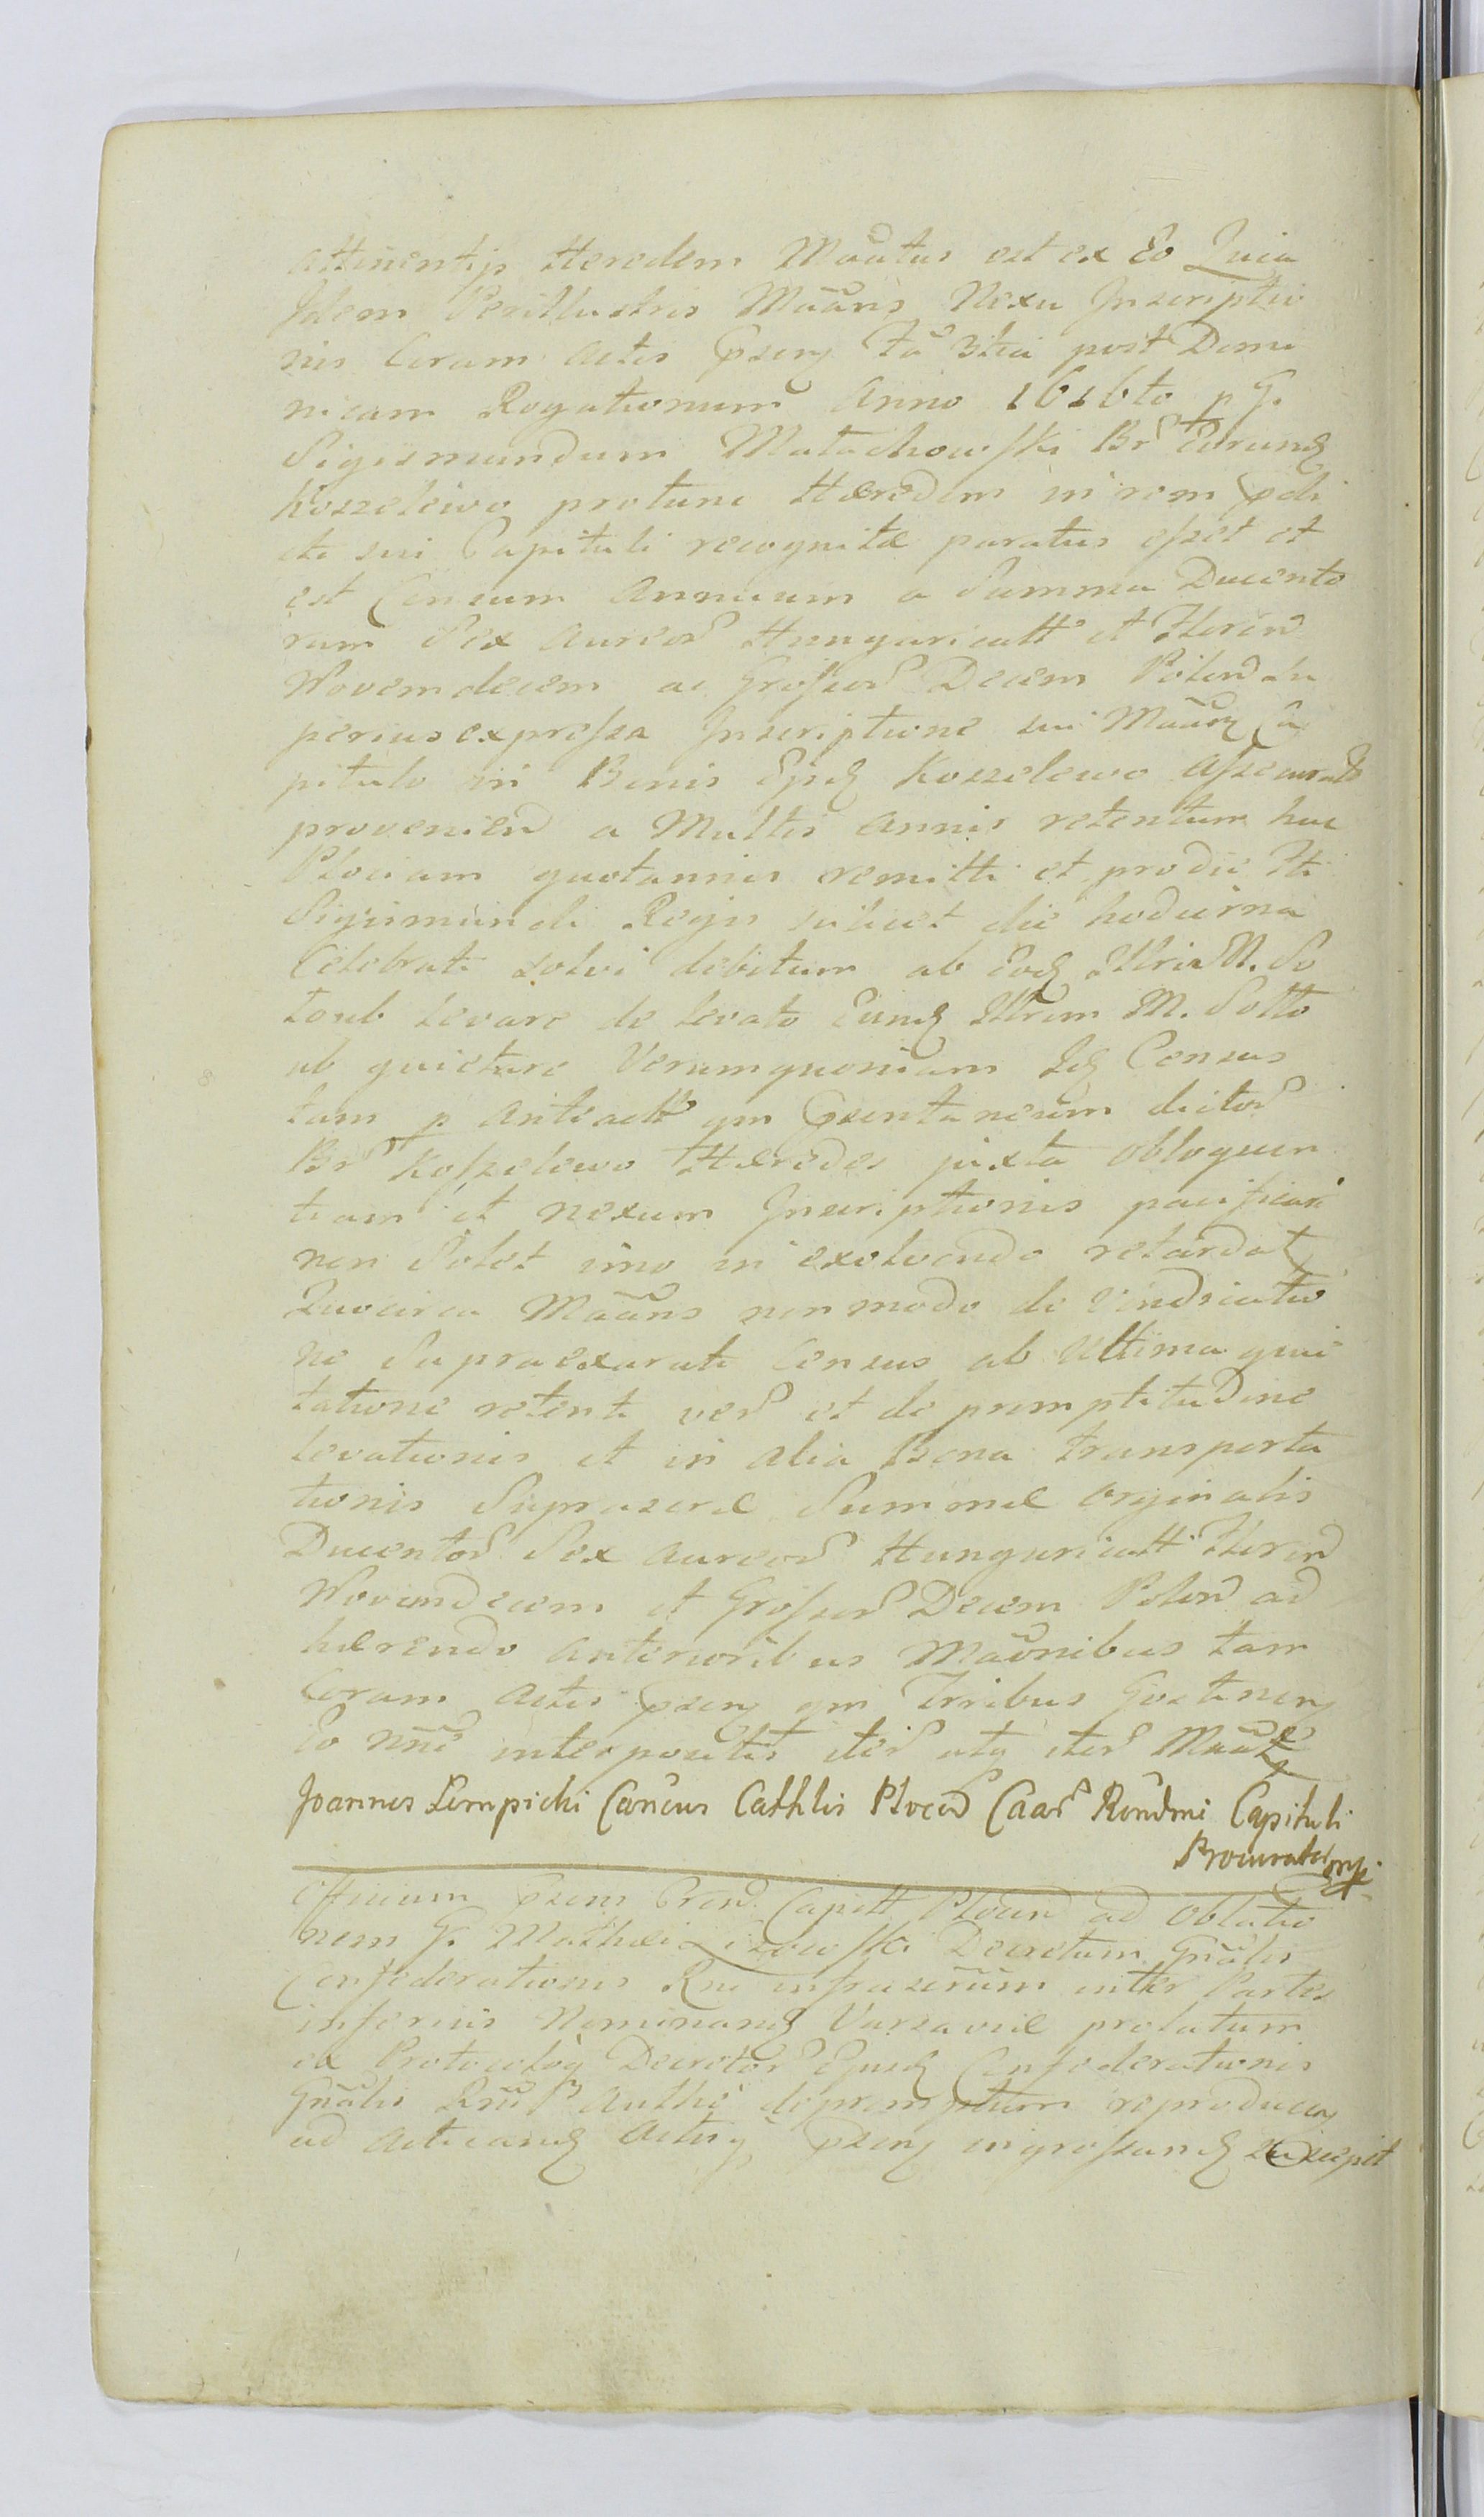 attinentis Heredem Maãtus est ex Eo Quia
Idem Perillustris Maãns Nexu Inscriptio
nis Coram actis Psenq fã 3tia post Domi
nicam Rogationum Anno 1616to p G.
Sigismundum Małachowski Br Eorund
Koszelewo protunc Hæredem in rem pdi
cti sui Capituli recognitæ paratus esset et
est Censum Annuum a Summa Ducento
rum Sex aureor Hungaricall et Floren
Novemdecem ac Grossor Decem Polon su
perius expressa Inscriptione sui Maãn Ca
pitulo in Bonis Ejsd Koszelewo assecurato
provenien a Multis annis retentum huc
Plociam quotannis remitti et pro die Sti
Sigismundi Regis scilicet die hodierna
Celebrati solvi debitum ab Eod Illri M. So
ltoub levare de levato Eund Illrem M. Solto
ub quietare Verumquoniam Id Census
tam p anteact qm Psentaneum dictor
Br Koszelewo Hæredes juxta obloquen
tiam et nexum Inscriptionis pacificari
non Solet imo in exolvendo retardat
Quocirca Maãns non modo de Vindicatio
ne Supraexarati Census ab Ultima quie
tatione retenti ver et de promptitudine
levationis et in alia Bona transporta
tionis Suprascræ Summæ orginalis
Ducentor Sex aureor Hungaricall Floren
Novemdecem et Grossor Decem Polon ad
hærendo anterioribus Maãonibus tam
Coram actis Psenq qm Trribus Gostinen
Eo nne interpositis iter atq iter Maãt
Joannes Lempicki Cancus Cathlis Plocen Caar Rendmi Capituli
Procurator mp
Officium Psens Cren Capitt Plocen ad Oblatio
nem G. Mathæi Decretum Gñalis
Confederationis Rni infrascrum inter Partes
inferius Nominand Varsaviæ prolatum
ex Protocolo Decretor Ejusd Confederationis
Gñalis Rni Authe depromptum reproducen
ad acticand actisq psenq ingrossand suscepit